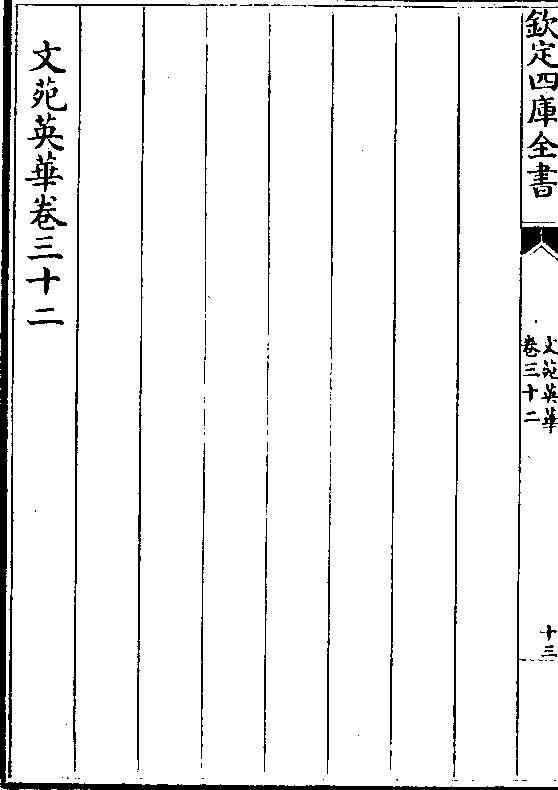 欽定四庫全書
文苑英華
卷三十二
十三
文苑英華卷三十二